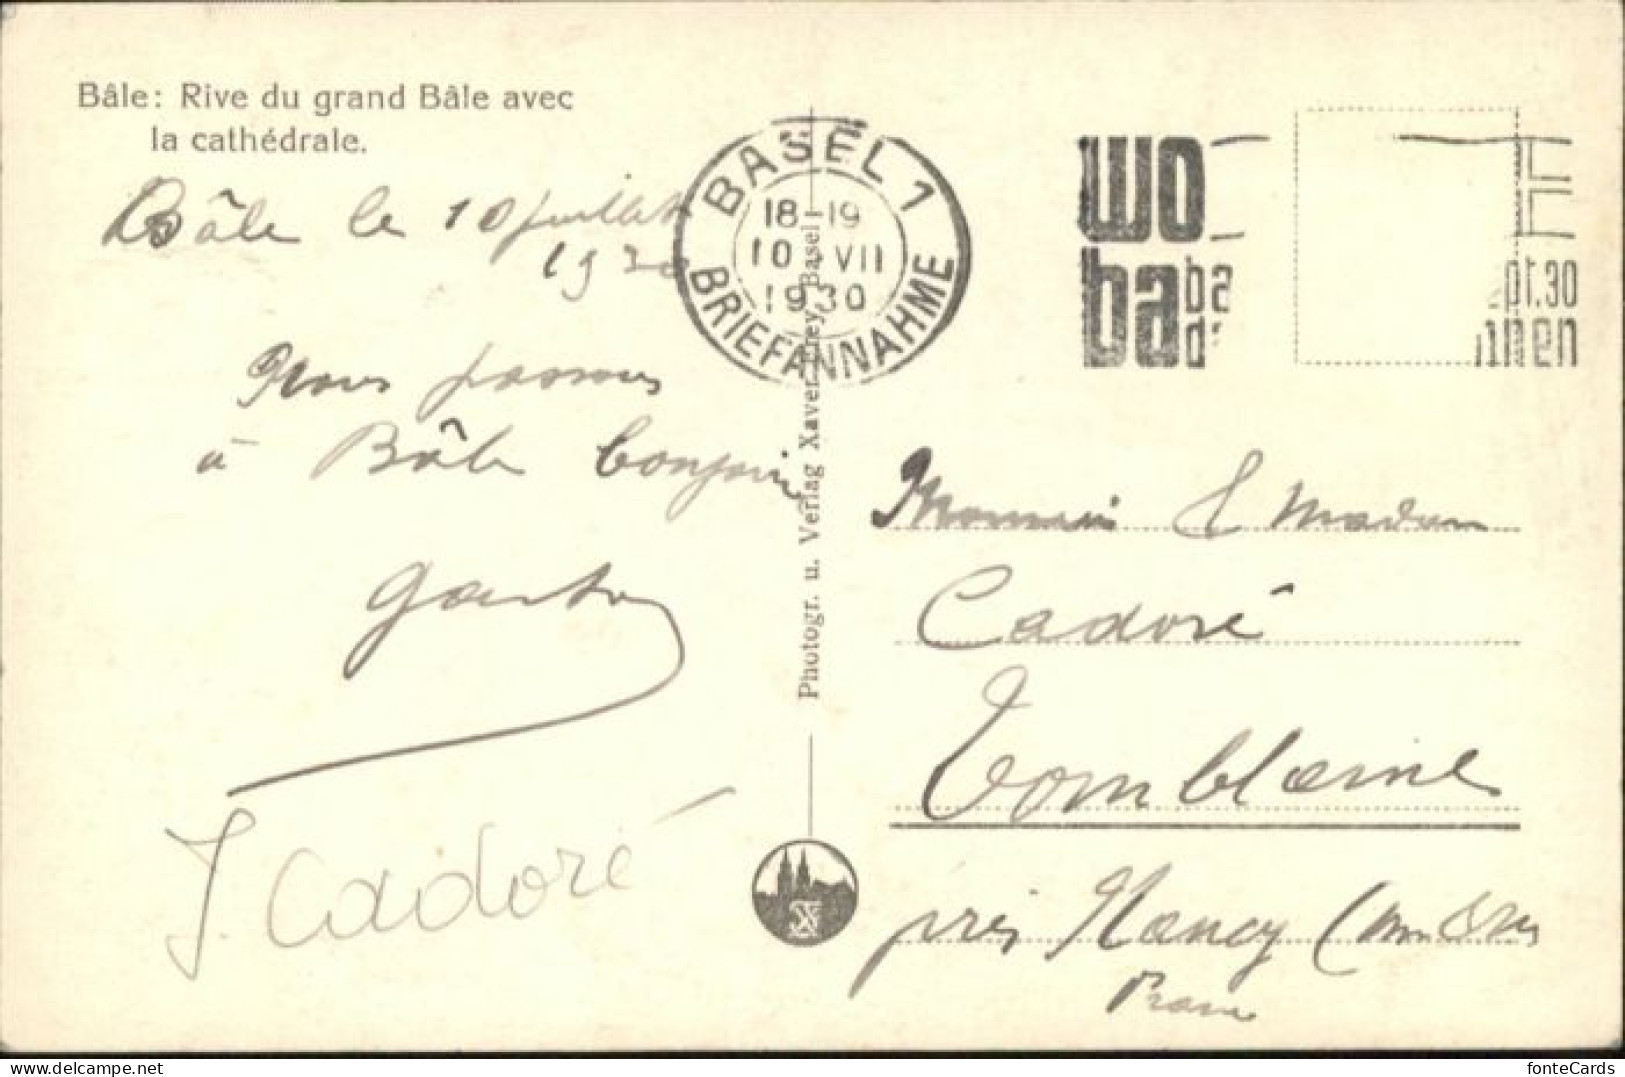 Bâle: Rive du grand Bâle avec
la cathédrale.
Bâle le 10 juillet
1930
Nous passons
à Bâle bonjour
Gaston
J. Cadoré
BASEL 1
18-19
10 VII
1930
BRIEFANNAHME
Photogr. u. Verlag Xaver Frey, Basel
wo
ba
ba
pt.30
nnen
Monsieur & Madame
Cadoré
Tomblaine
près Nancy
France
fonteCards